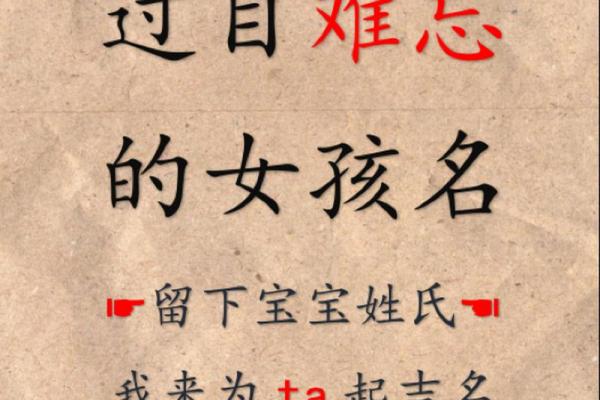 过目难忘
的女孩名
☛留下宝宝姓氏☚
我来为ta起吉名